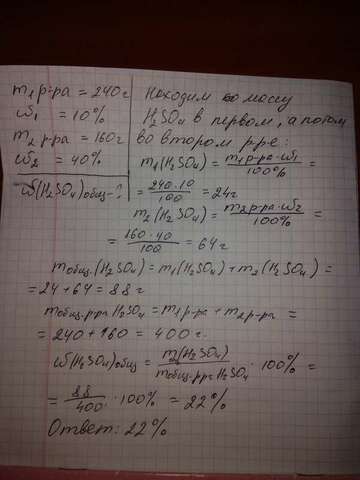 m₁ р-ра = 240г
ω₁ = 10%
m₂ р-ра = 160г
ω₂ = 40%
ω(H₂SO₄)общ-?
Находим массу
H₂SO₄ в первом, а потом
во втором р-ре:
m₁(H₂SO₄) = m₁р-ра·ω₁/100% =
= 240·10/100 = 24г
m₂(H₂SO₄) = m₂р-ра·ω₂/100% =
= 160·40/100 = 64г
mобщ.(H₂SO₄) = m₁(H₂SO₄) + m₂(H₂SO₄) =
= 24 + 64 = 88 г
mобщ.р-ра H₂SO₄ = m₁р-ра + m₂р-ра =
= 240 + 160 = 400 г.
ω(H₂SO₄)общ = m(H₂SO₄)/mобщ.р-ра H₂SO₄ · 100% =
= 88/400 · 100% = 22%
Ответ: 22%